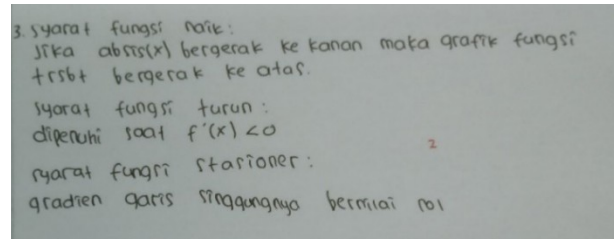 3. syarat fungsi naik:
Jika absis(x) bergerak ke kanan maka grafik fungsi
trsbt bergerak ke atas.
syarat fungsi turun:
dipenuhi saat f'(x) <0
2
syarat fungsi stasioner:
gradien garis singgungnya bernilai nol